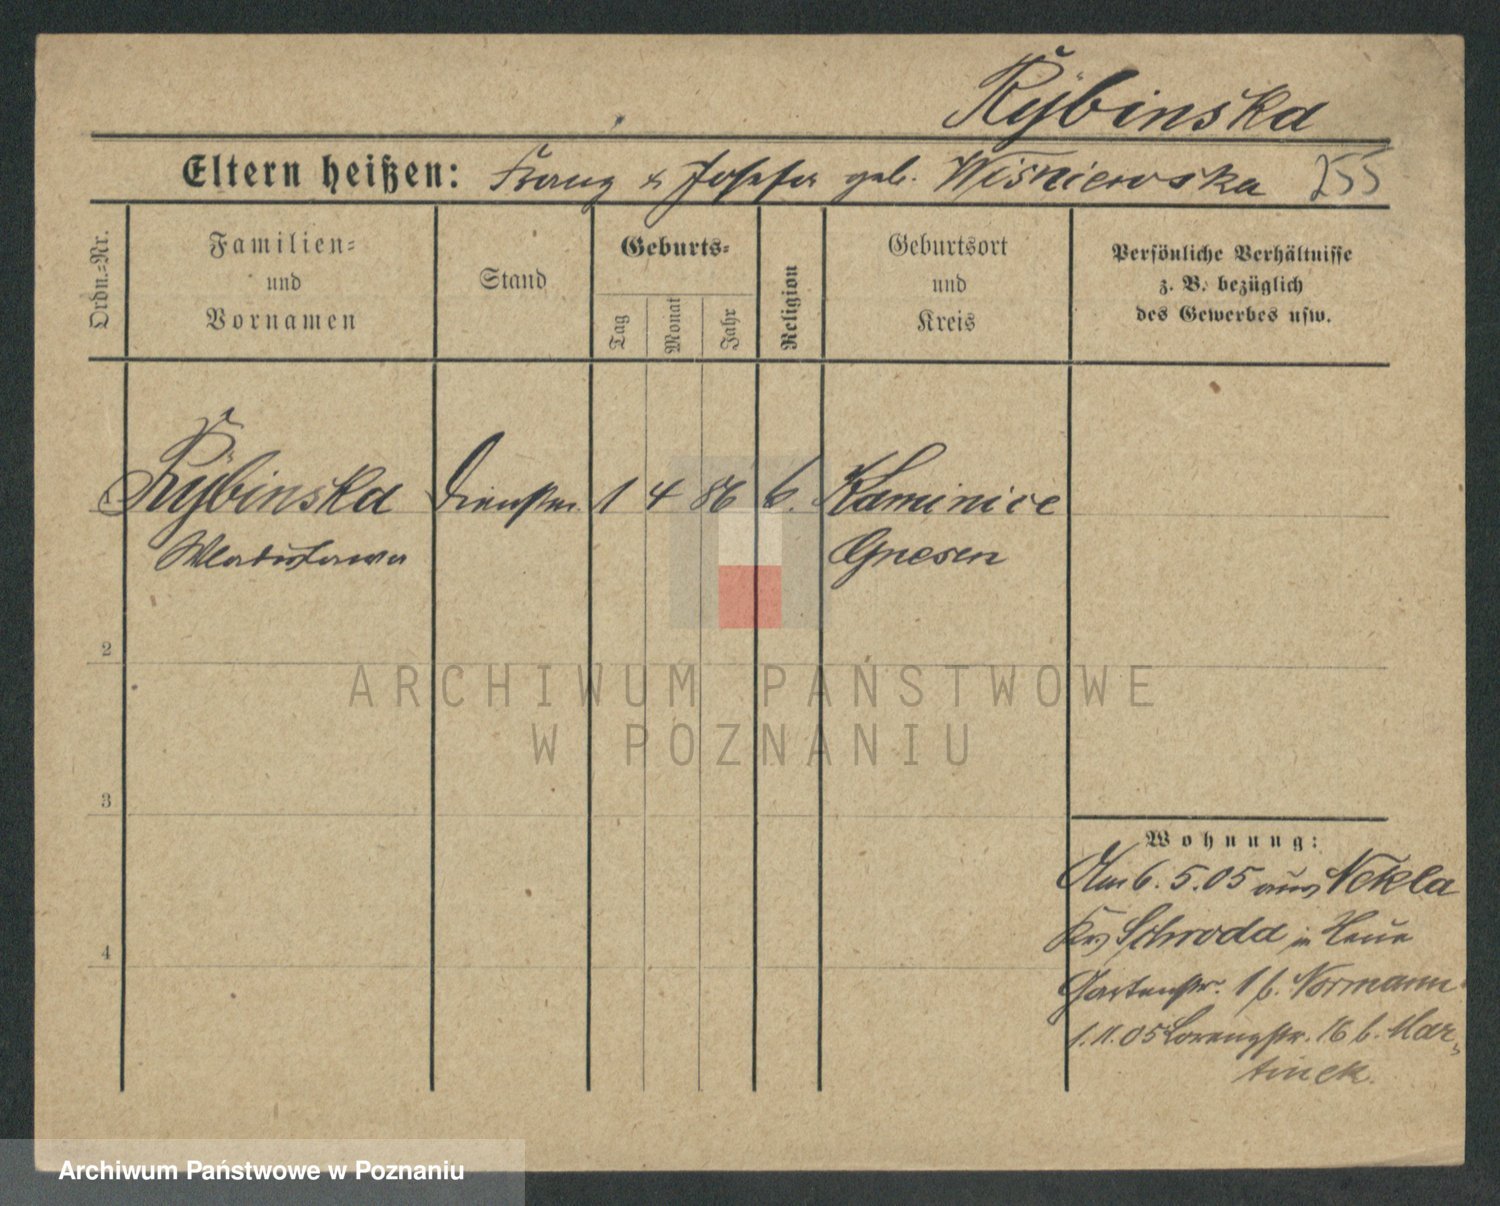 Rÿbinska
Eltern heißen: Franz & Josefa geb. Wiśniewska 255
Ordn.=Nr.
Familien=
und
Vornamen
Stand
Geburts=
Tag
Monat
Jahr
Religion
Geburtsort
und
Kreis
Persönliche Verhältnisse
z. B. bezüglich
des Gewerbes usw.
Rÿbinska Dienstm. 1 4 86 k. Kaminice
Wladislawa Gnesen
2
3
4
Wohnung:
Am 6.5.05 aus Nekla
Krs Schroda in Neue
Gartenstr. 1 b. Normann
1.11.05 Lorenzstr. 16 b. Mar-
tinek.
ARCHIWUM PAŃSTWOWE
W POZNANIU
Archiwum Państwowe w Poznaniu